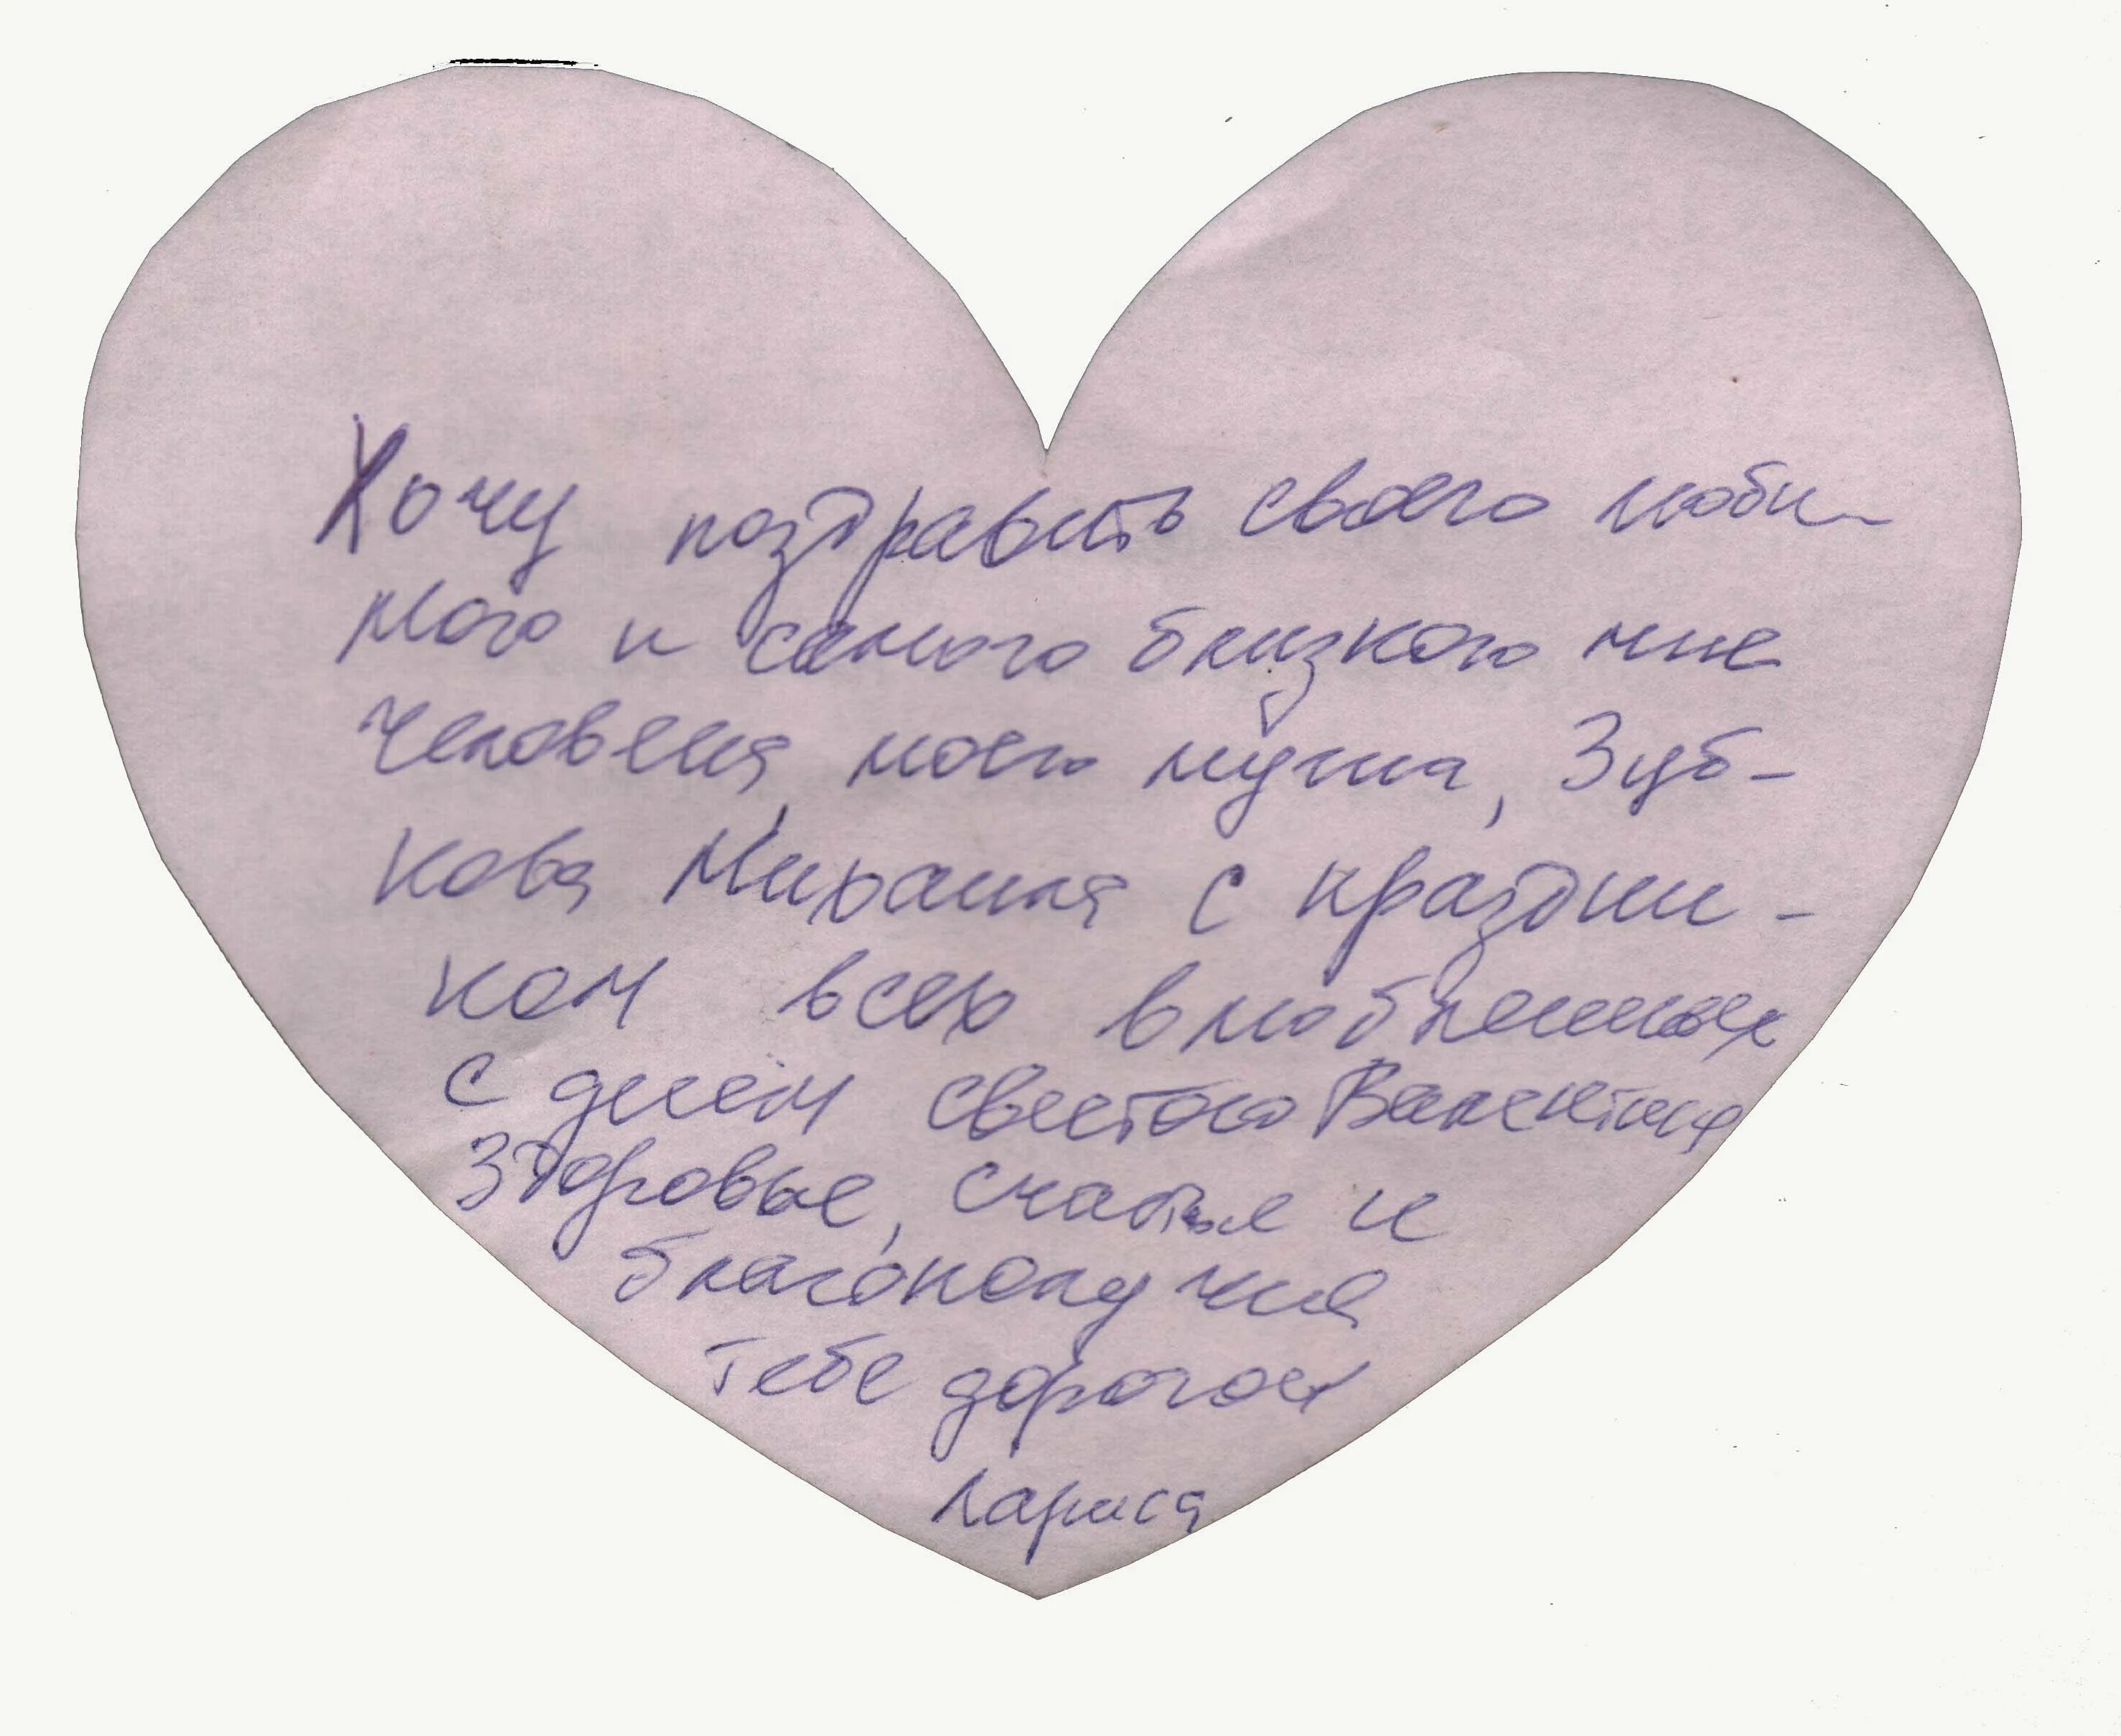 Хочу поздравить своего люби-
мого и самого близкого мне
человека, моего мужа, Зуб-
кова Михаила с праздни-
ком всех влюбленных
с днём святого Валентина
Здоровье, счастье и
благополучия
тебе дорогой
Лариса